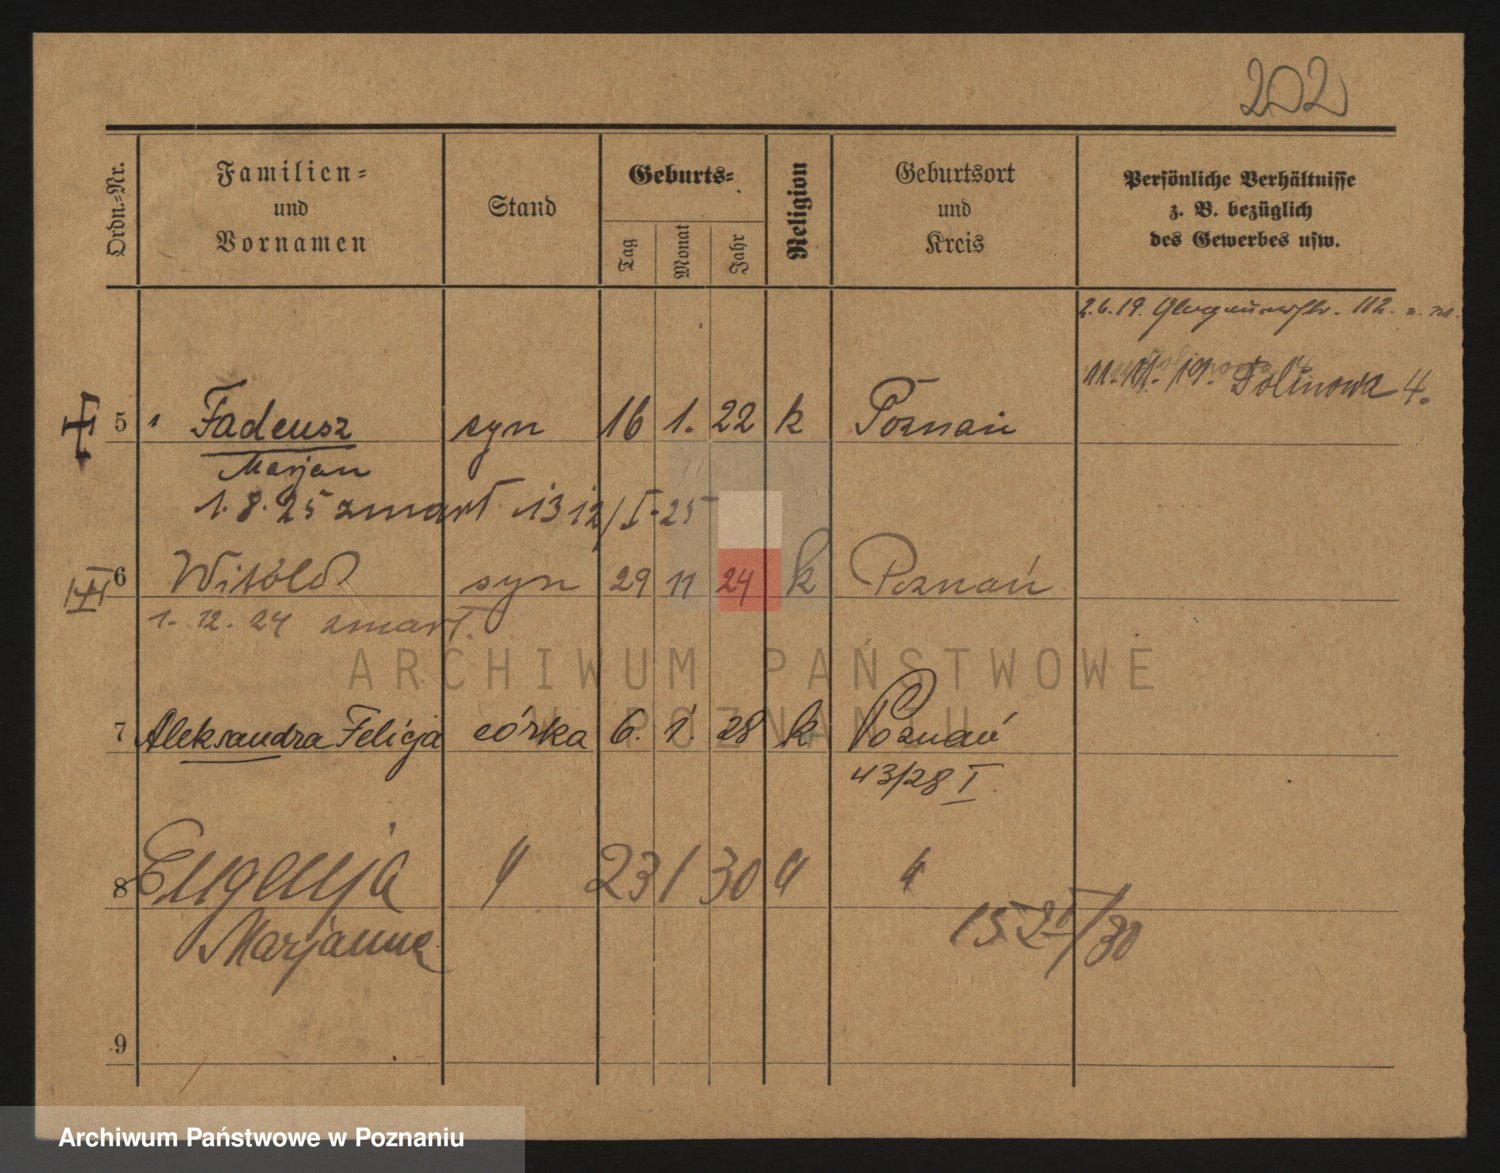 202
Ordn.-Nr.
Familien-
und
Vornamen
Stand
Geburts-
Tag
Monat
Jahr
Religion
Geburtsort
und
Kreis
Persönliche Verhältnisse
z. B. bezüglich
des Gewerbes usw.
2.6.19. 112.
19. Dolinowa 4.
5 Tadeusz syn 16 1. 22 k Poznań
Marjan
1.8.25 zmarł 13 12/I-25
6 Witold syn 29 11 24 k Poznań
1.12.24 zmarł.
ARCHIWUM PAŃSTWOWE
W POZNANIU
7 Aleksandra Felicja córka 6. 1. 28 k Poznań
43/28 I
8 Eugenja " 23 1 30 " "
Marjanna
152 II/30
9
Archiwum Państwowe w Poznaniu